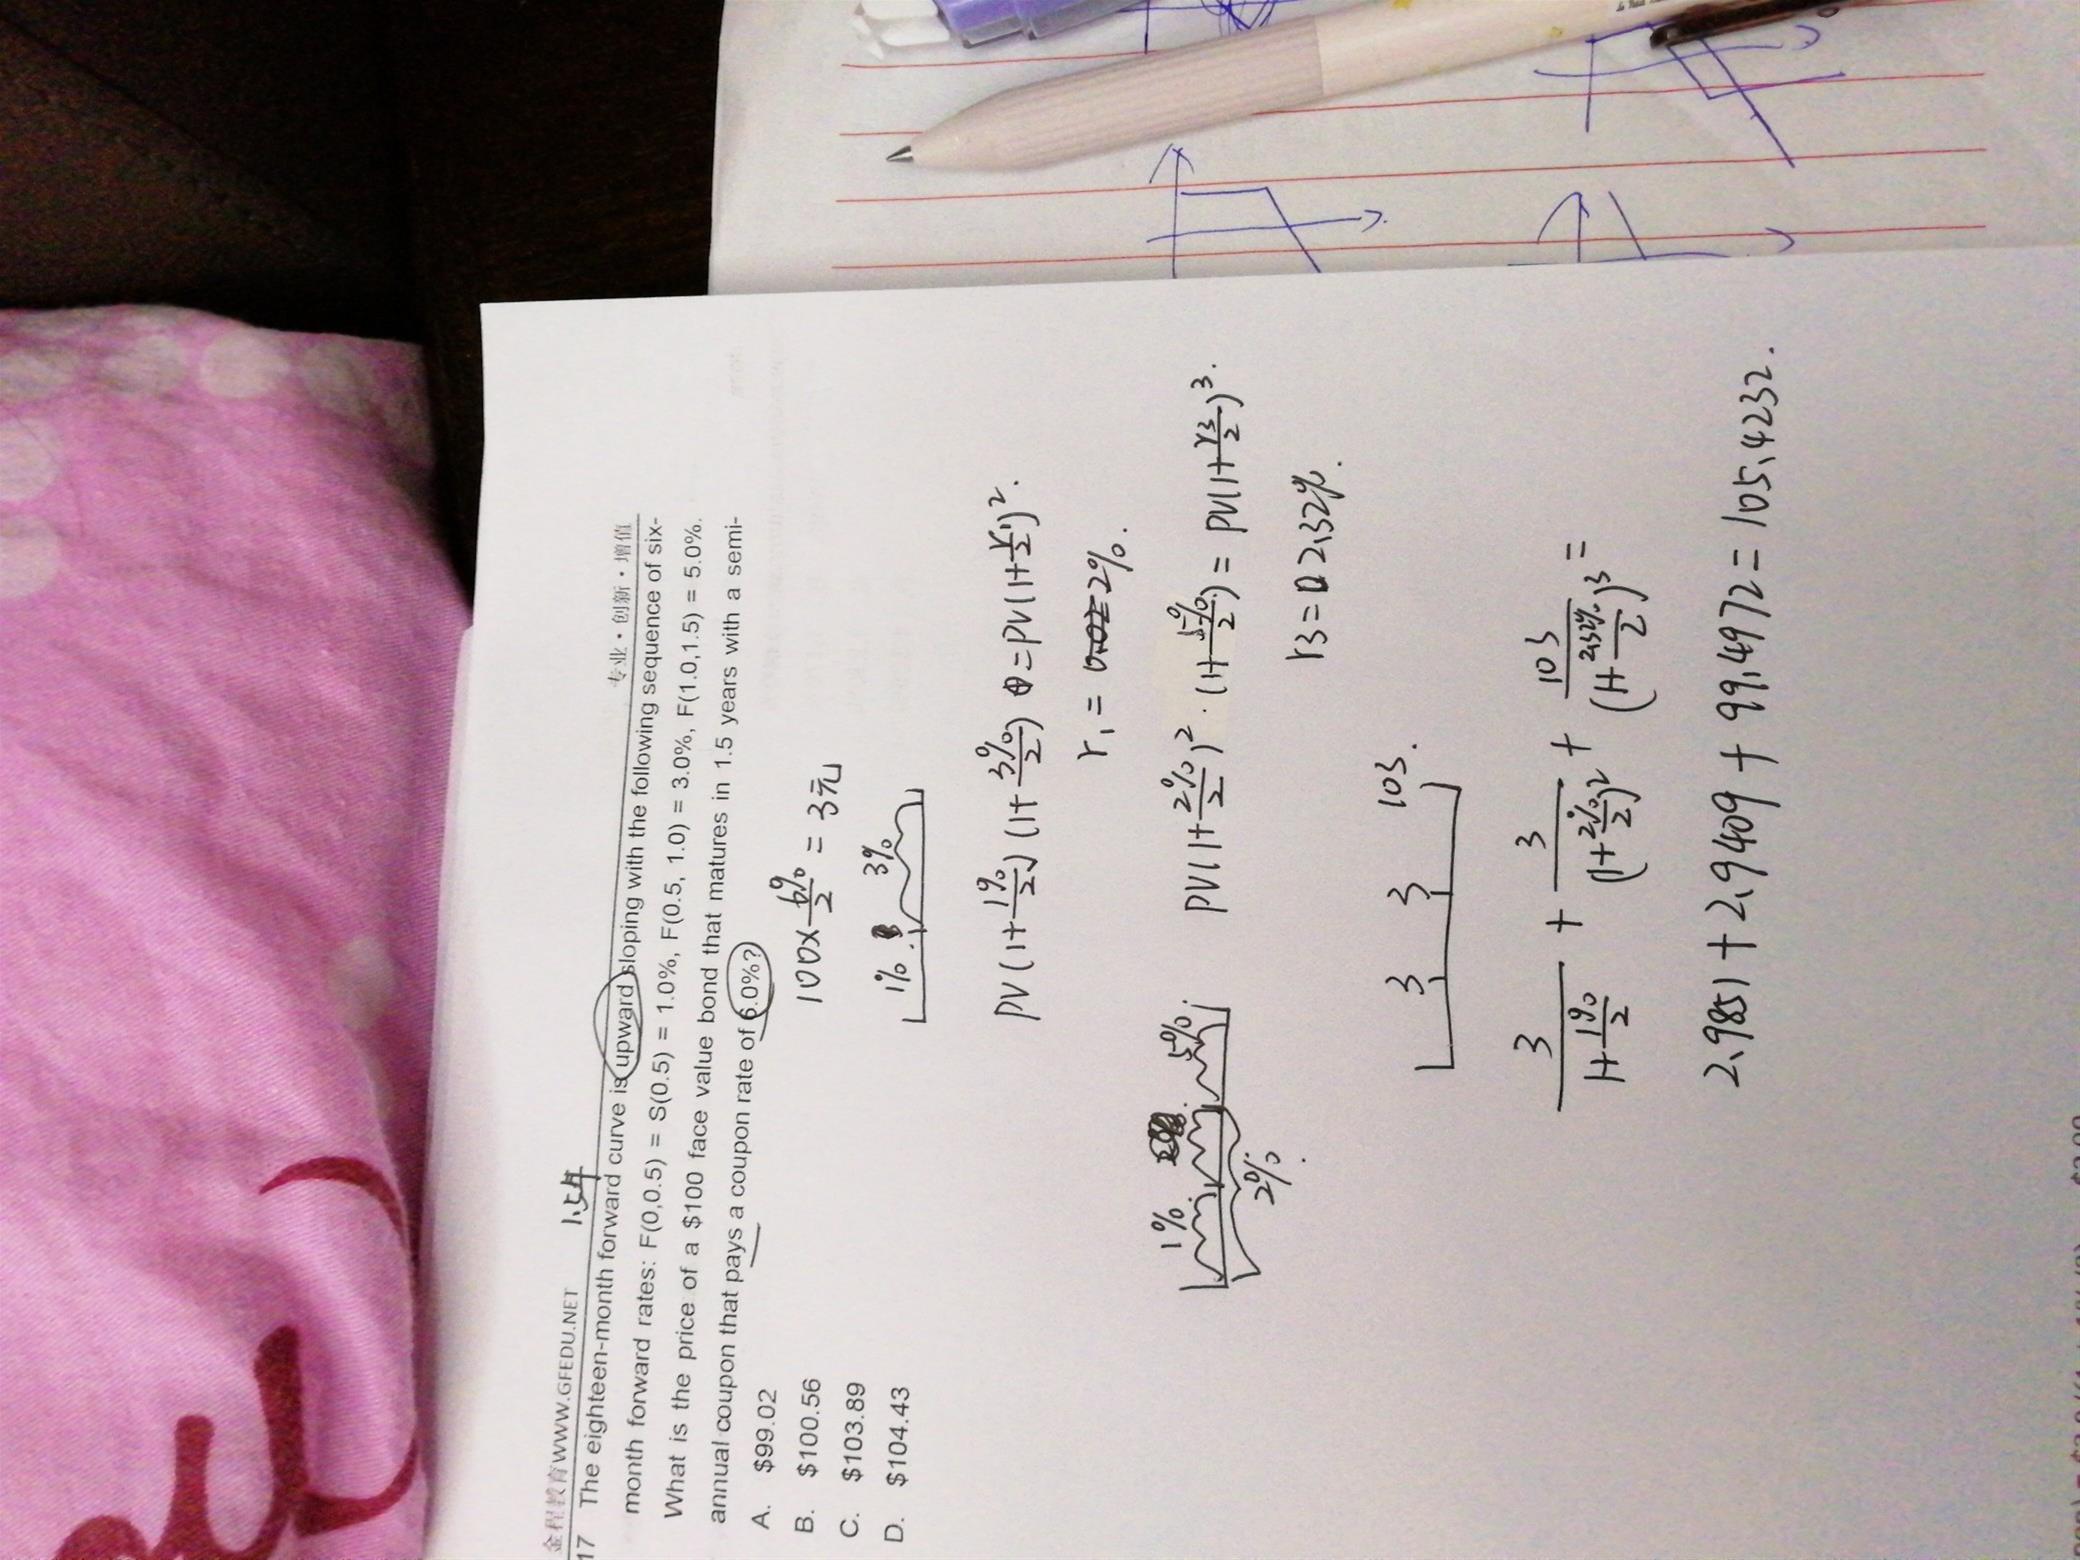 金程教育WWW.GFEDU.NET
专业·创新·增值
1.5年
17 The eighteen-month forward curve is upward sloping with the following sequence of six-
month forward rates: F(0,0.5) = S(0.5) = 1.0%, F(0.5, 1.0) = 3.0%, F(1.0,1.5) = 5.0%.
What is the price of a $100 face value bond that matures in 1.5 years with a semi-
annual coupon that pays a coupon rate of 6.0%?
A. $99.02
B. $100.56
C. $103.89
D. $104.43
100×6%/2 = 3元
1% 3%
PV(1+1%/2)(1+3%/2) = PV(1+r1/2)².
r₁ = 2%.
1% 5%
2%.
PV(1+2%/2)²·(1+5%/2) = PV(1+r3/2)³.
r3 = 2.32%.
3 3 103.
3/(1+1%/2) + 3/(1+2%/2)² + 103/(1+2.32%/2)³ =
2.9851 + 2.9409 + 99.4972 = 105.4232.